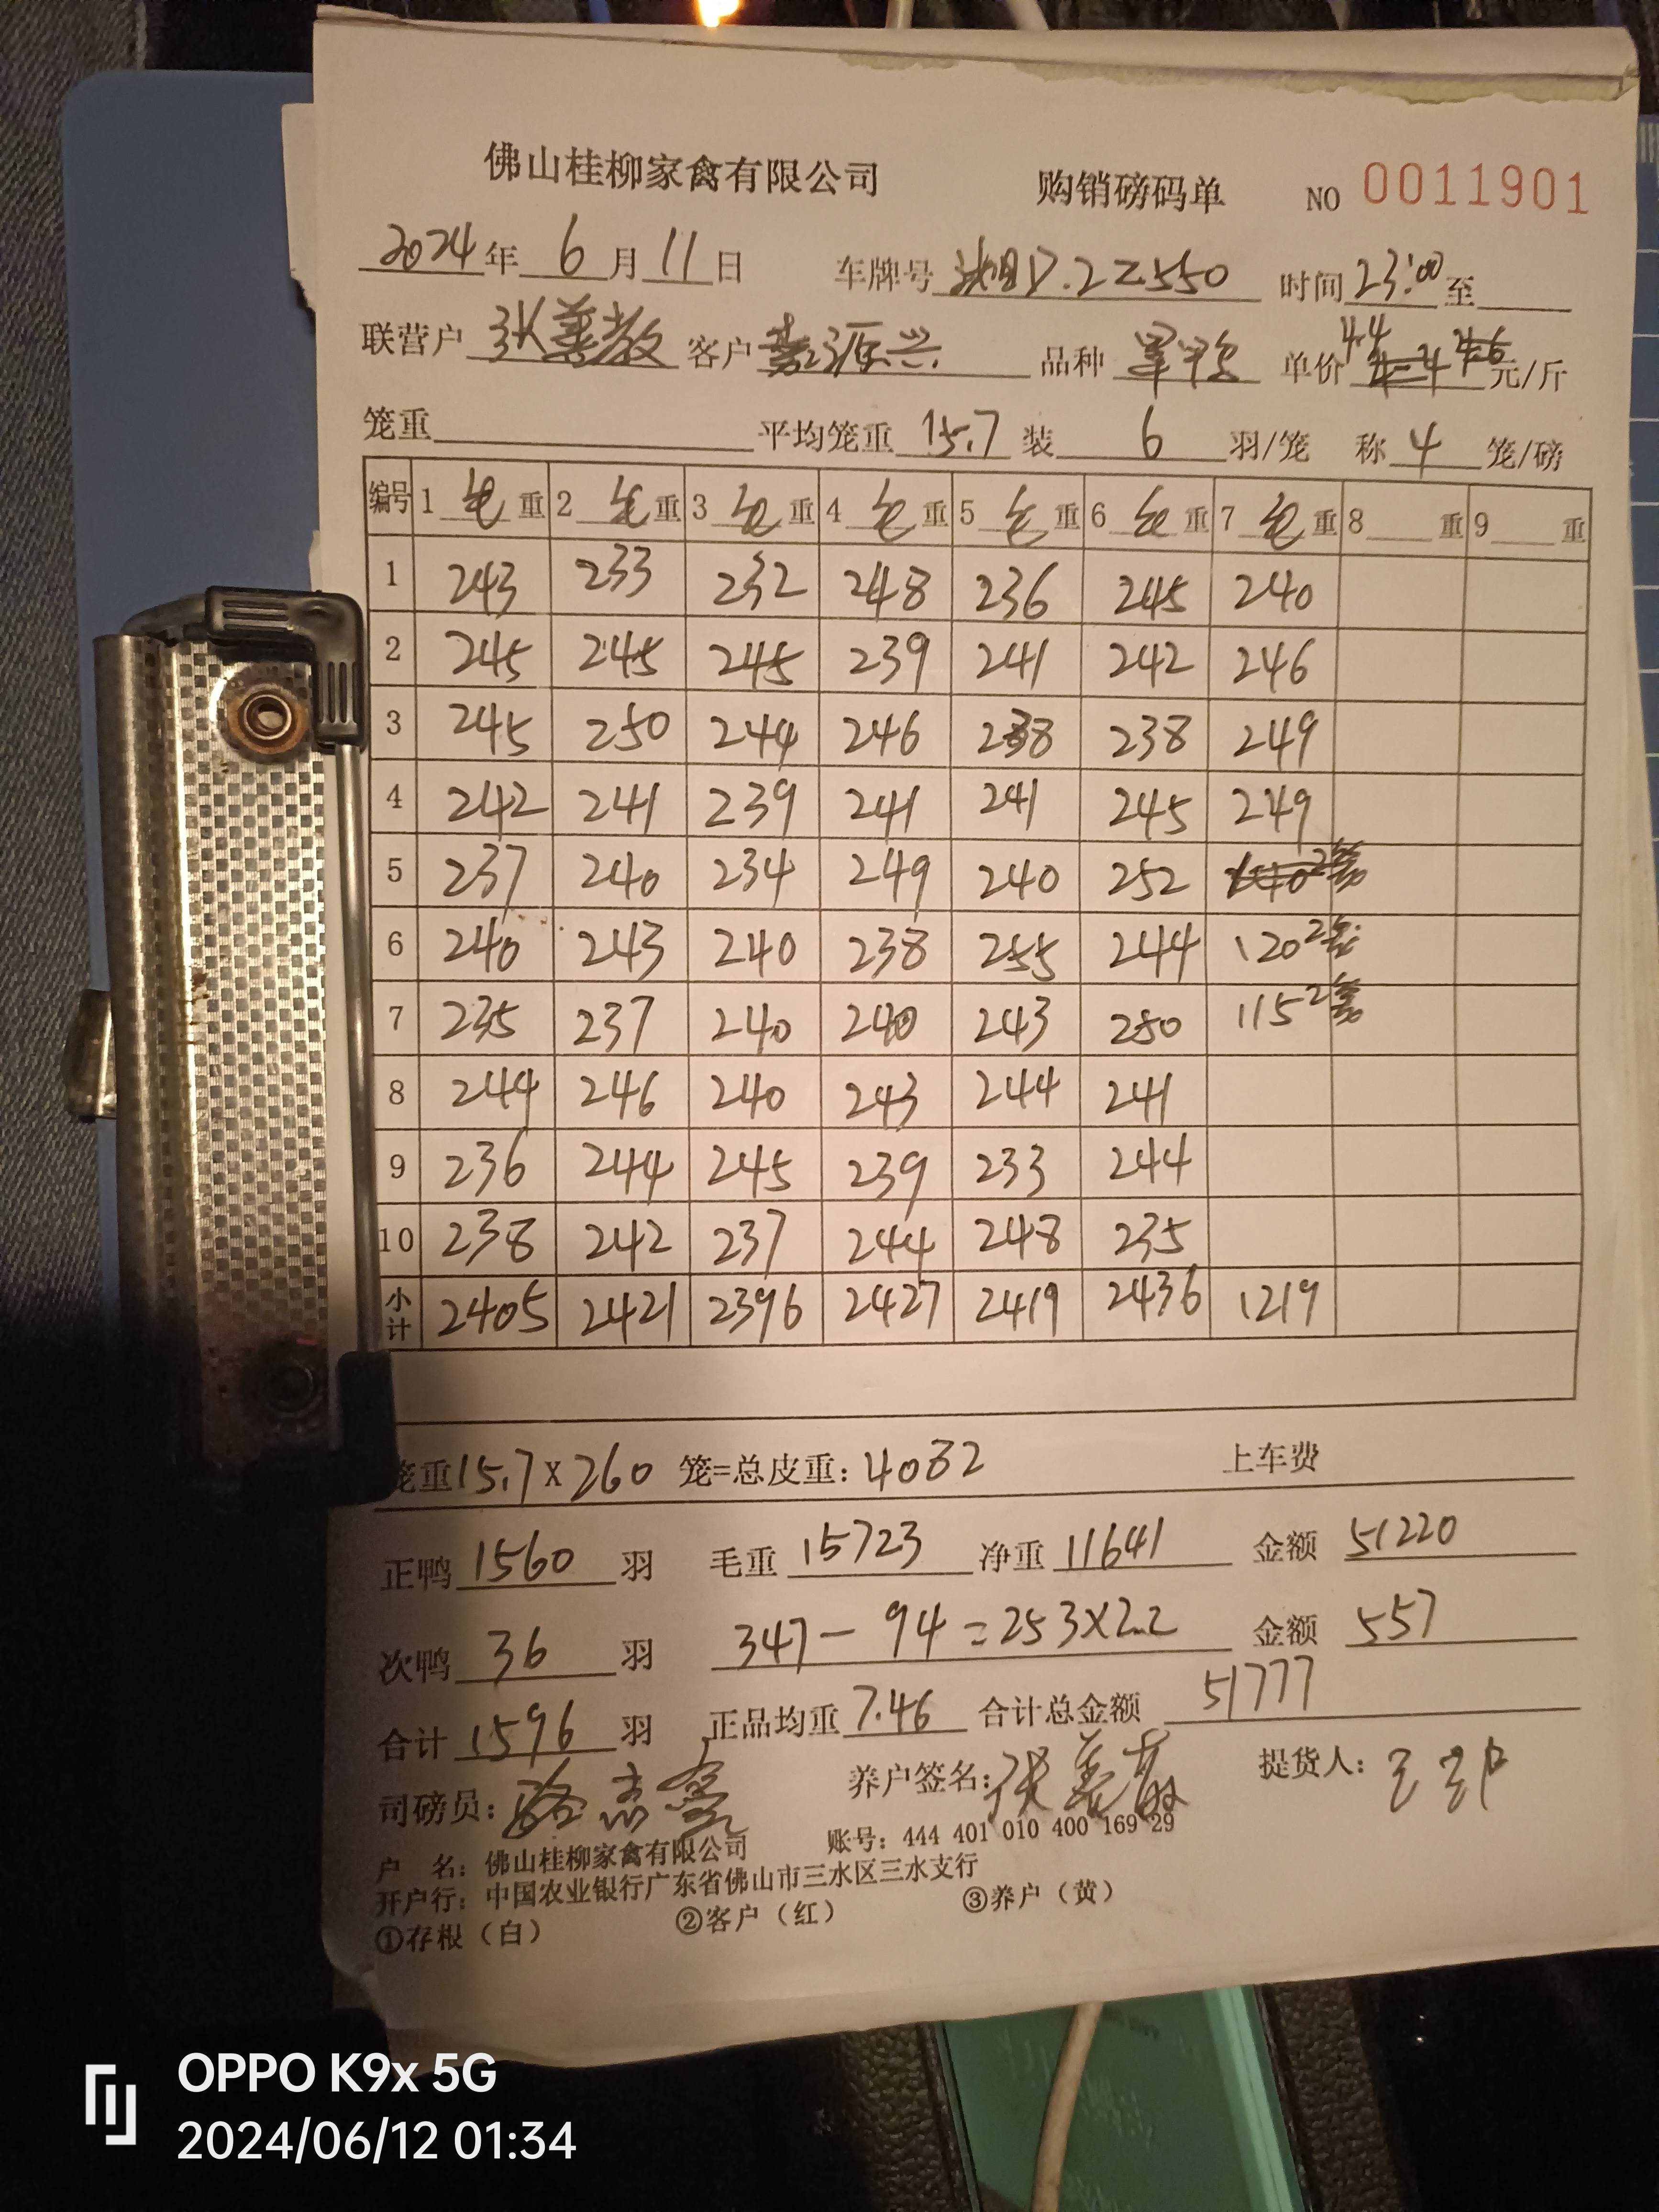 佛山桂柳家禽有限公司 购销磅码单 NO 0011901
2024年6月11日 车牌号 D.2Z550 时间23:00至
联营户 张善教 客户 源兴 品种 单价 4.4 元/斤
笼重 平均笼重 15.7 装 6 羽/笼 称 4 笼/磅
编号 1 毛 重 2 毛 重 3 毛 重 4 毛 重 5 毛 重 6 毛 重 7 毛 重 8 重 9 重
1 243 233 232 248 236 245 240
2 245 245 245 239 241 242 246
3 245 250 244 246 238 238 249
4 242 241 239 241 241 245 249
5 237 240 234 249 240 252
6 240 243 240 238 255 244 120 2笼
7 235 237 240 240 243 250 115 2笼
8 244 246 240 243 244 241
9 236 244 245 239 233 244
10 238 242 237 244 248 235
小计 2405 2421 2396 2427 2419 2436 1219
笼重15.7X260 笼=总皮重：4082 上车费
正鸭 1560 羽 毛重 15723 净重 11641 金额 51220
次鸭 36 羽 347-94=253×2.2 金额 557
合计 1596 羽 正品均重 7.46 合计总金额 51777
司磅员： 养户签名：张善教 提货人：
户 名：佛山桂柳家禽有限公司 账号：444 401 010 400 169 29
开户行：中国农业银行广东省佛山市三水区三水支行
①存根（白） ②客户（红） ③养户（黄）
OPPO K9x 5G
2024/06/12 01:34